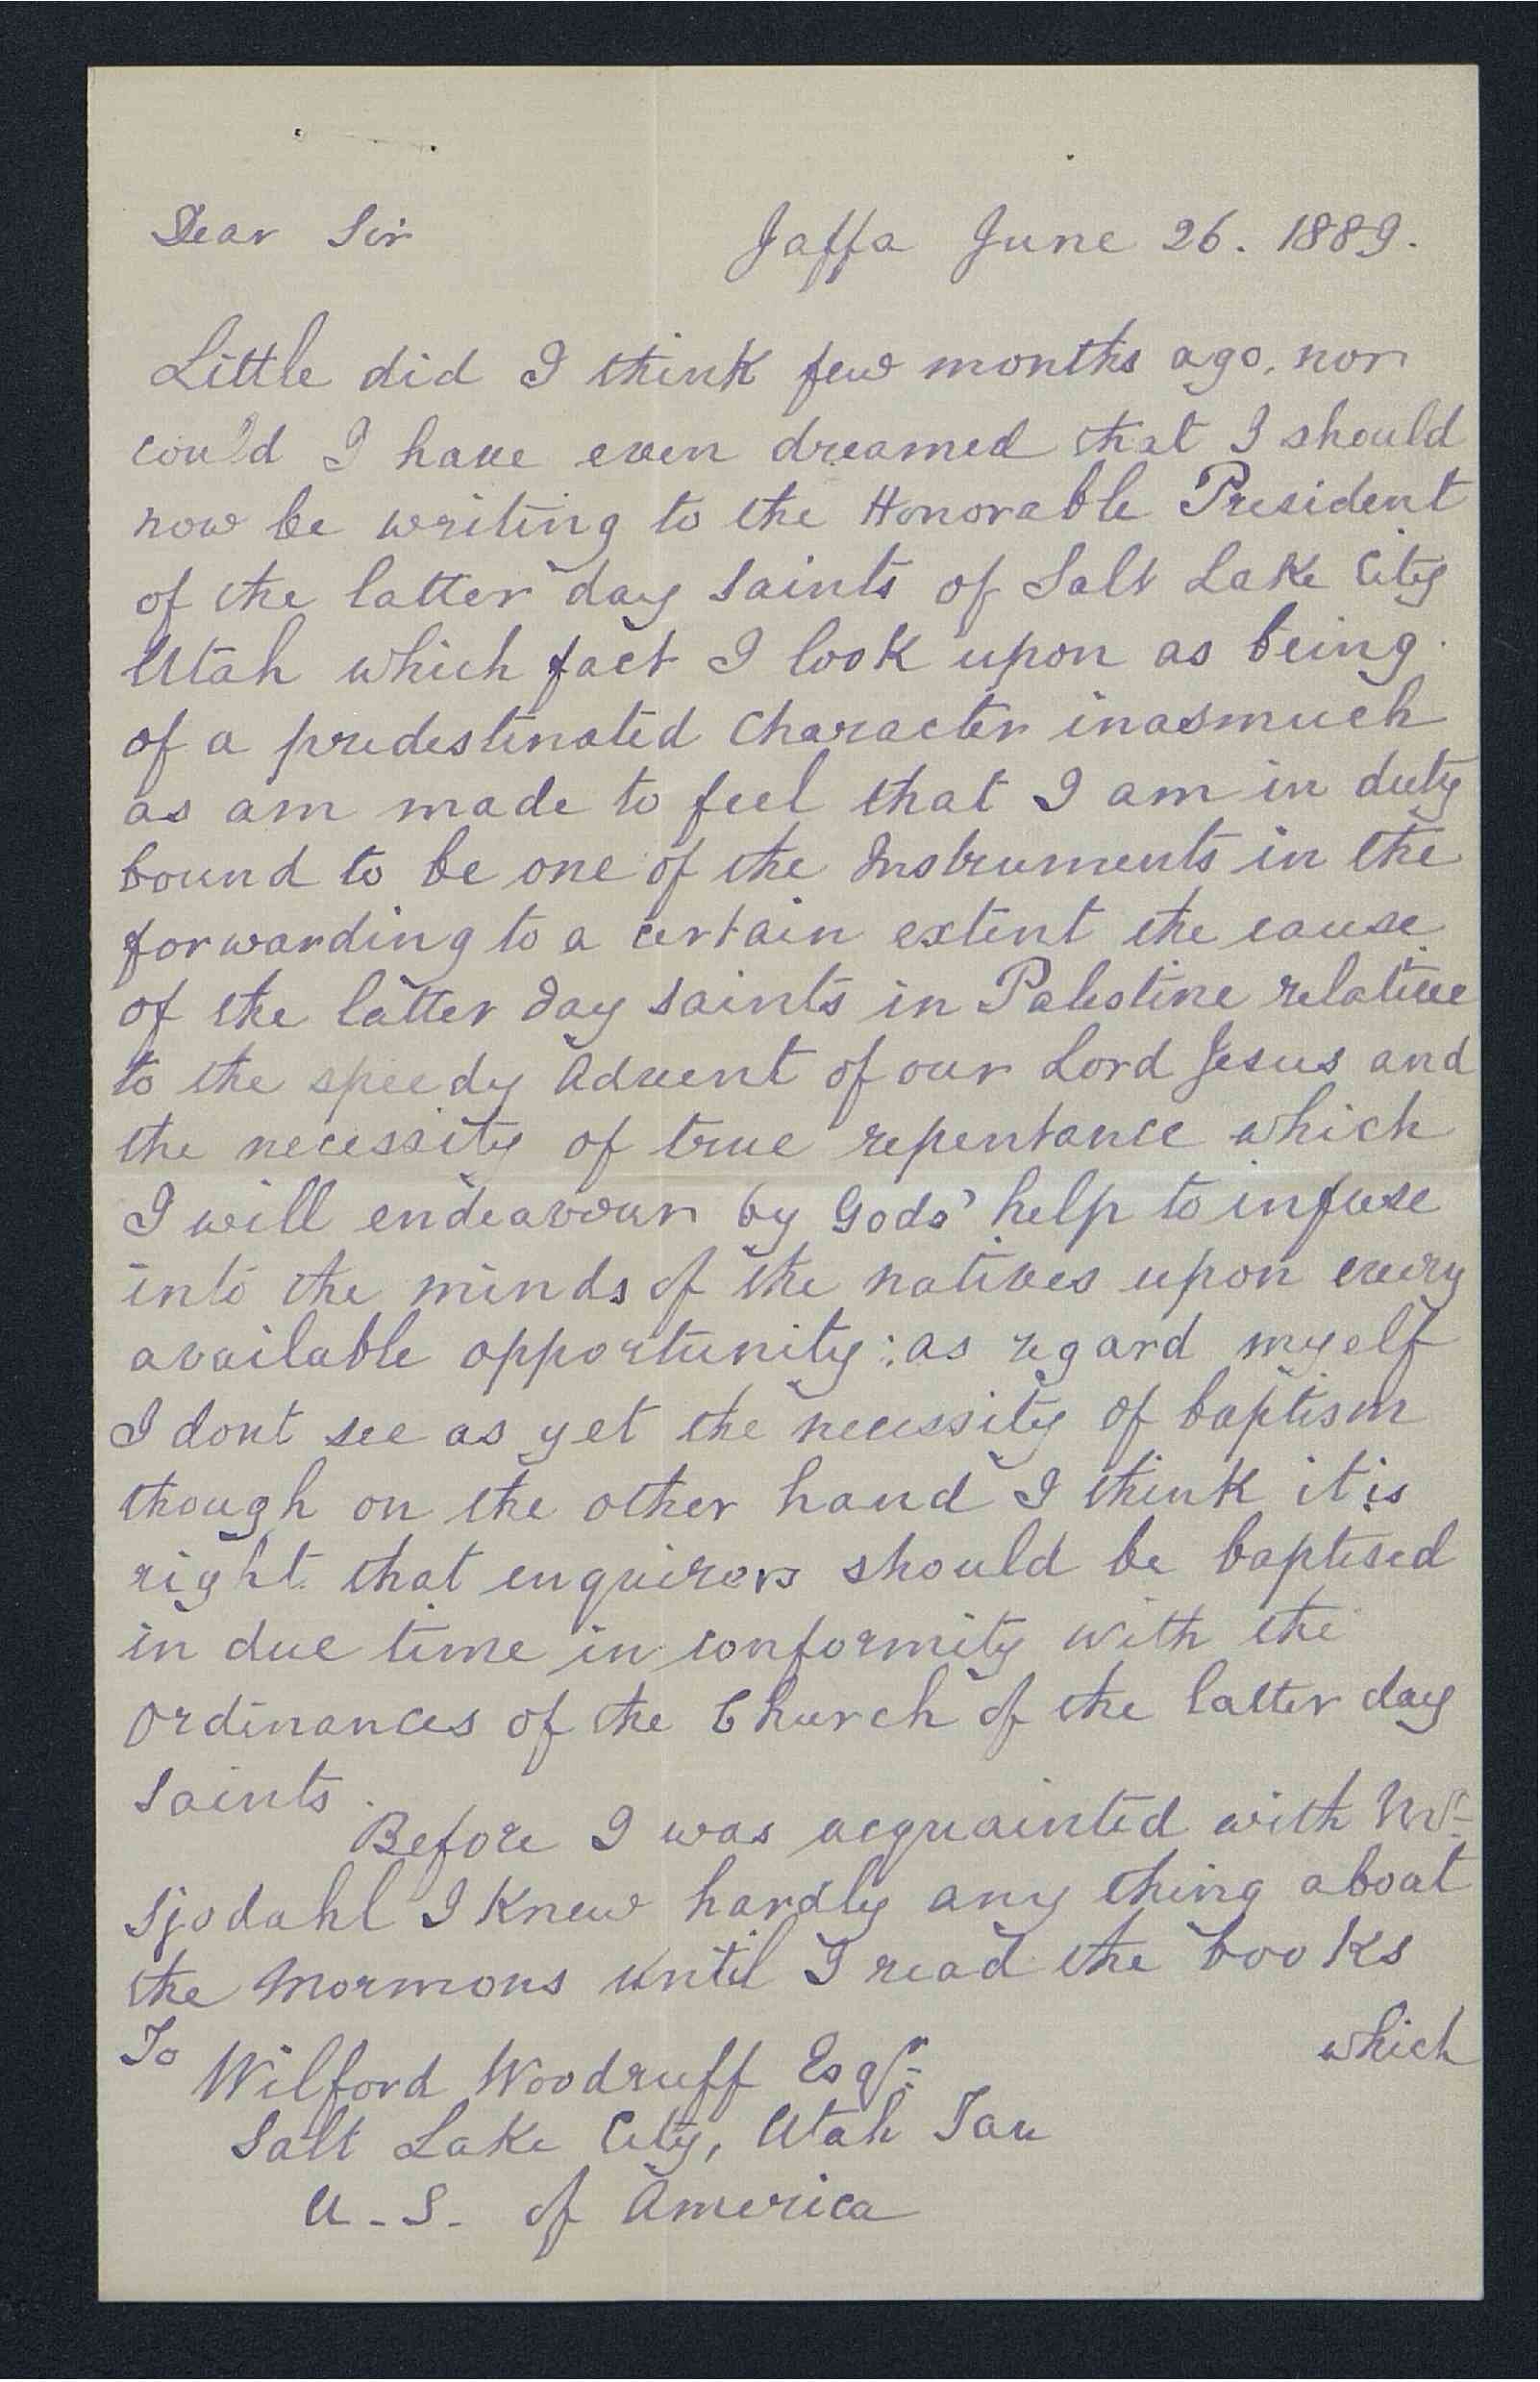 Dear Sir Jaffa June 26. 1889.
Little did I think few months ago, nor
could I have even dreamed that I should
now be writing to the Honorable President
of the latter day Saints of Salt Lake City
Utah which fact I look upon as being
of a predestinated Character inasmuch
as am made to feel that I am in duty
bound to be one of the Instruments in the
forwarding to a certain extent the cause
of the latter day Saints in Palestine relative
to the speedy Advent of our Lord Jesus and
the necessity of true repentance which
I will endeavour by Gods' help to infuse
into the minds of the natives upon every
available opportunity; as regard myself
I dont see as yet the necessity of baptism
though on the other hand I think it is
right that enquirers should be baptised
in due time in conformity with the
Ordinances of the Church of the latter day
Saints.
Before I was acquainted with Mr
Sjodahl I knew hardly any thing about
the Mormons until I read the books
which
To Wilford Woodruff Esqr
Salt Lake City, Utah
U. S. of America